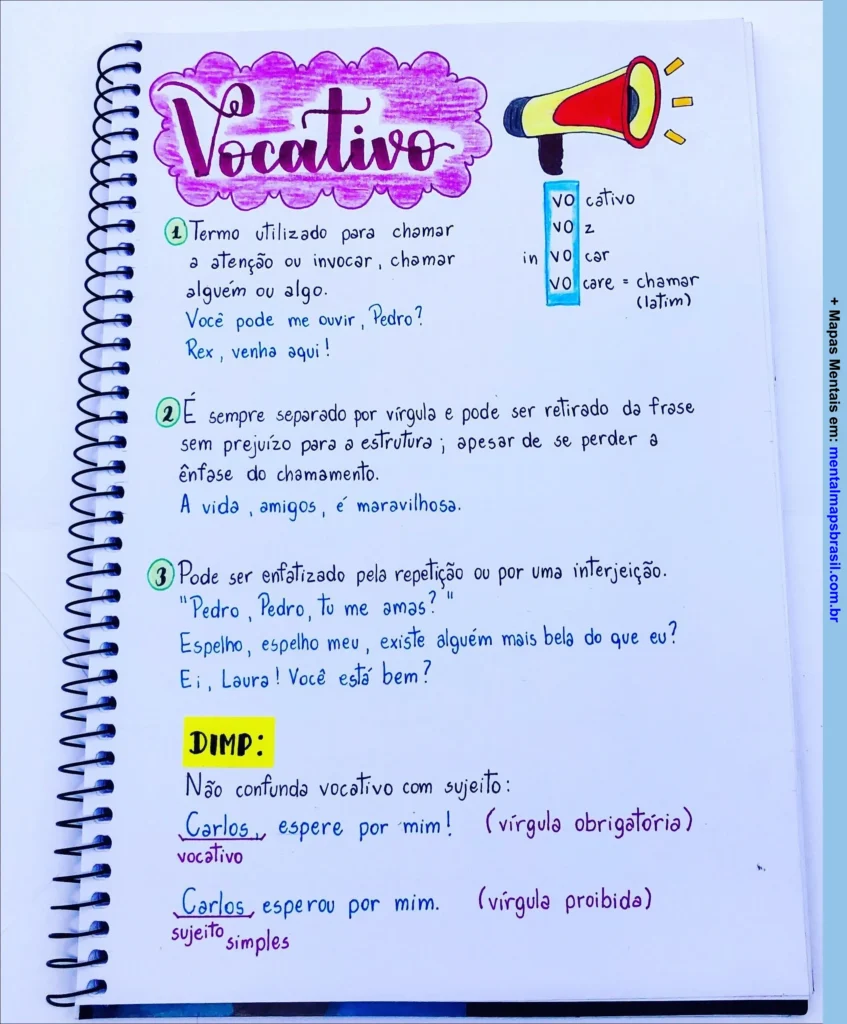 Vocativo
VO cativo
VO z
in VO car
VO care = chamar
(latim)
1 Termo utilizado para chamar
a atenção ou invocar, chamar
alguém ou algo.
Você pode me ouvir, Pedro?
Rex, venha aqui!
2 É sempre separado por vírgula e pode ser retirado da frase
sem prejuízo para a estrutura; apesar de se perder a
ênfase do chamamento.
A vida, amigos, é maravilhosa.
3 Pode ser enfatizado pela repetição ou por uma interjeição.
"Pedro, Pedro, tu me amas?"
Espelho, espelho meu, existe alguém mais bela do que eu?
Ei, Laura! Você está bem?
DIMP:
Não confunda vocativo com sujeito:
Carlos, espere por mim! (vírgula obrigatória)
vocativo
Carlos esperou por mim. (vírgula proibida)
sujeito simples
+ Mapas Mentais em: mentalmapsbrasil.com.br